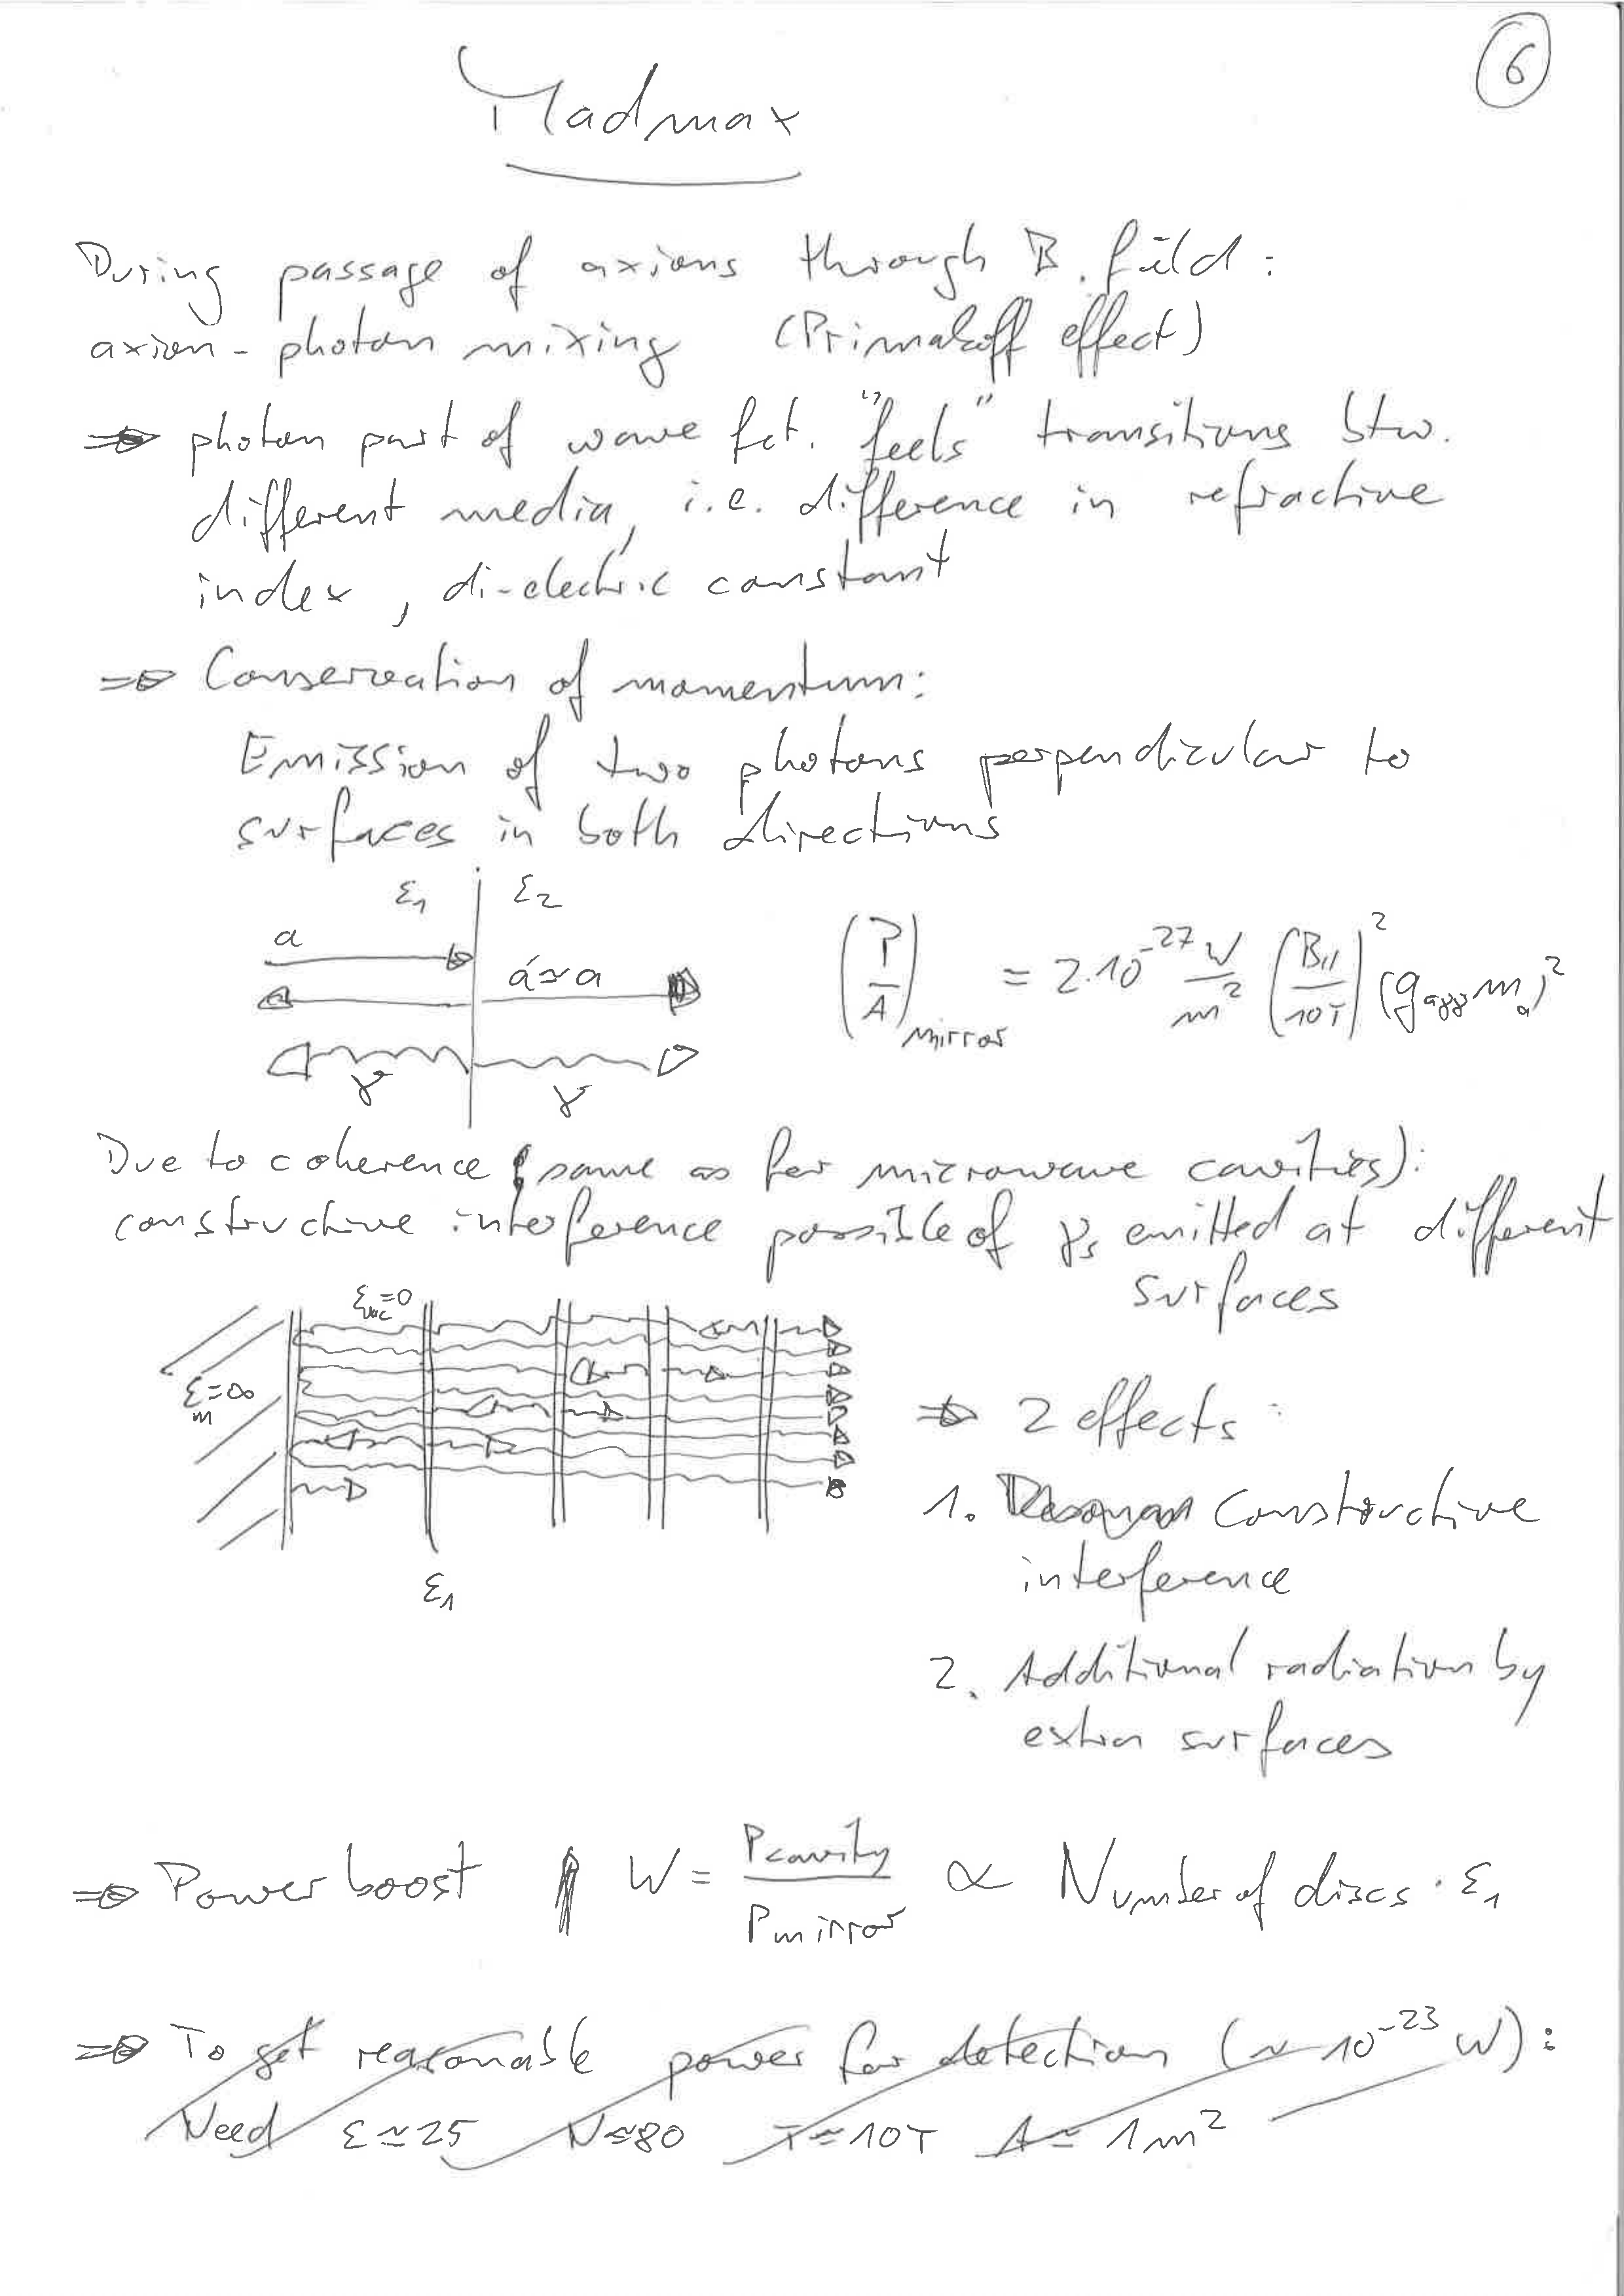 6
Madmax
During passage of axions through B. field:
axion-photon mixing (Primakoff effect)
⇒ photon part of wave fct. "feels" transitions btw.
different media, i.e. difference in refractive
index, di-electric constant
⇒ Conservation of momentum:
Emission of two photons perpendicular to
surfaces in both directions
ε₁ ε₂
a
a'≃a
γ γ
(P/A)mirror = 2·10⁻²⁷ W/m² (B||/10T)² (gaγγ ma)²
Due to coherence (same as for microwave cavities):
constructive interference possible of γs emitted at different
surfaces
εvac=0
εm=∞
ε₁
⇒ 2 effects:
1. Constructive
interference
2. Additional radiation by
extra surfaces
⇒ Power boost W = Pcavity/Pmirror ∝ Number of discs · ε₁
⇒ To get reasonable power for detection (~ 10⁻²³ W):
Need ε≃25 N≃80 T≃10T A≃1m²